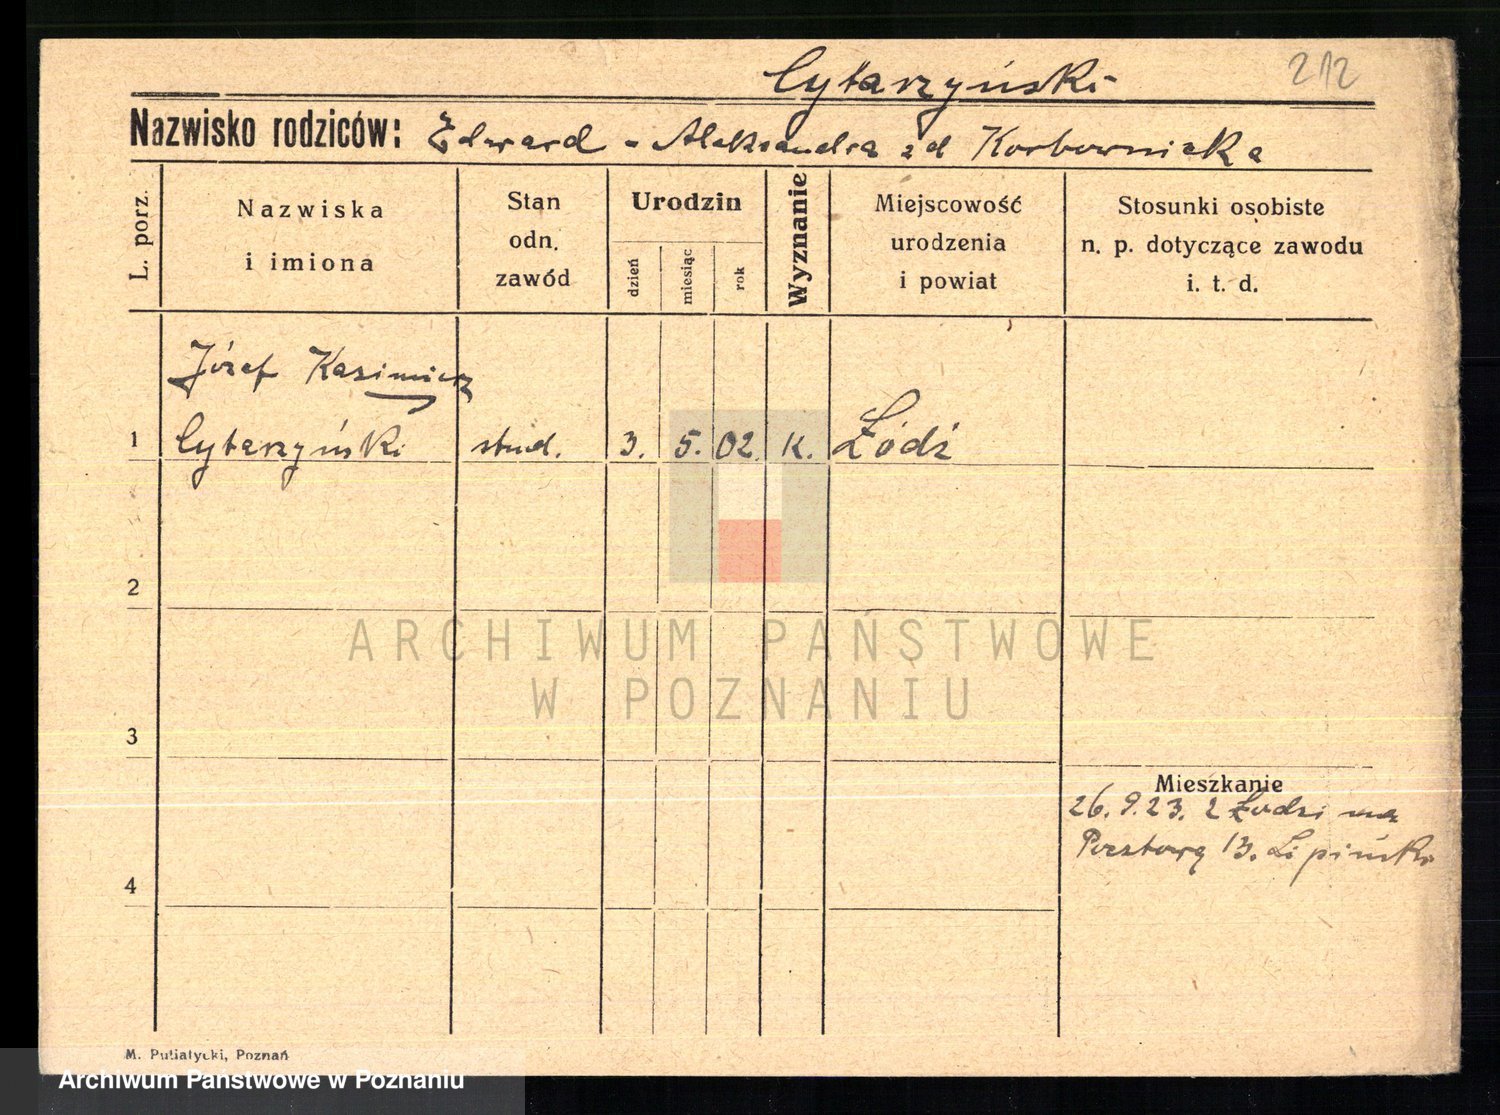 Cytarzyński
212
Nazwisko rodziców: Edward - Aleksandra zd Korbownicka
L. porz.
Nazwiska
i imiona
Stan
odn.
zawód
Urodzin
dzień
miesiąc
rok
Wyznanie
Miejscowość
urodzenia
i powiat
Stosunki osobiste
n. p. dotyczące zawodu
i. t. d.
Józef Kazimierz
1 Cytarzyński stud. 3. 5. 02. K. Łódź
2
ARCHIWUM PAŃSTWOWE
W POZNANIU
3
Mieszkanie
26.9.23. z Łodzi na
Pocztową 13. Lipiński
4
M. Putiatycki, Poznań
Archiwum Państwowe w Poznaniu